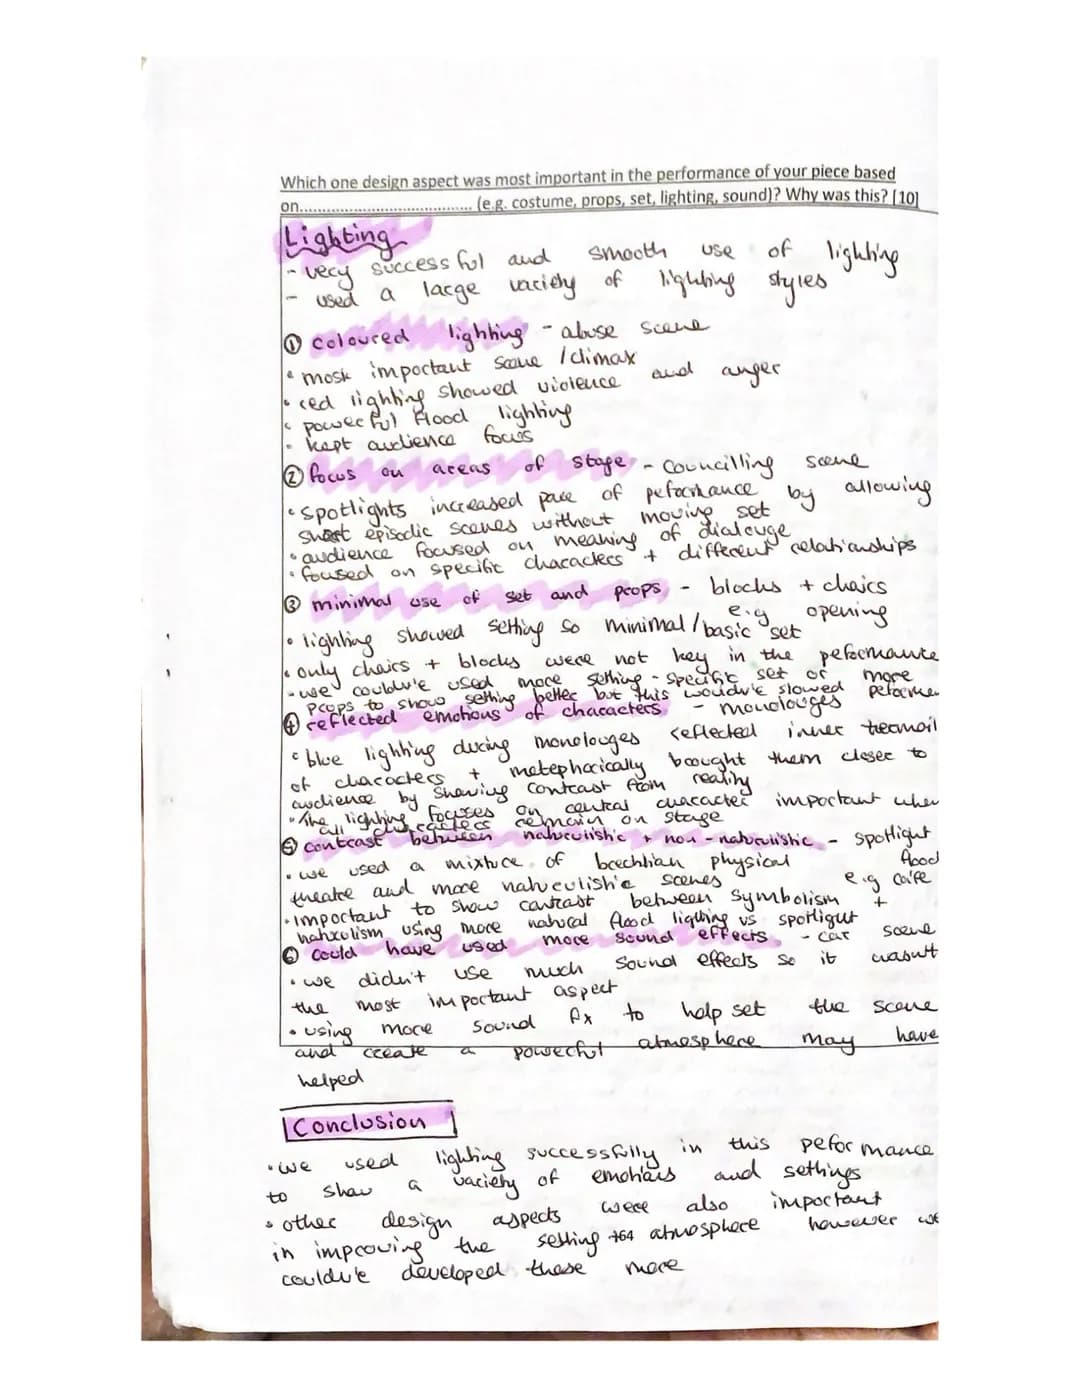 Which one design aspect was most important in the performance of your piece based
on..................................... (e.g. costume, props, set, lighting, sound)? Why was this? [10]
Lighting
- very successful and smooth use of lighting
- used a large variety of lighting styles
① coloured lighting - abuse scene
• most important scene / climax
• red lighting showed violence and anger
• powerful flood lighting
• kept audience focus
② focus on areas of stage - councilling scene
• spotlights increased pace of peformance by allowing
short episodic scenes without moving set
• audience focused on meaning of dialouge
• focused on specific characters + different relationships
③ minimal use of set and props - blocks + chairs
e.g opening
• lighting showed setting so minimal / basic set
• only chairs + blocks were not key in the peformance
- we could've used more setting - specific set or more
props to show setting better but this would've slowed peformer
④ reflected emotions of characters - monolouges
• blue lighting during monolouges reflected inner tearmoil
of characters + metephorically brought them closer to
audience by showing contrast from reality
• The lighting focuses on central character important when
all characters remain on stage
⑤ contrast between naturalistic + non-naturalistic - spotlight
flood
• we used a mixture of brechtian physical
e.g cafe
theatre and more naturalistic scenes
• important to show contrast between symbolism +
natralism using more natural flood lighting vs spotlight
⑥ could have used more sound effects - car scene
• we didn't use much sound effects so it wasn't
the most important aspect
• using more sound fx to help set the scene
and create a powerful atmosphere may have
helped
Conclusion
• we used lighting successfully in this peformance
to show a variety of emotions and settings
• other design aspects were also important
in improving the setting + atmosphere however we
could've developed these more